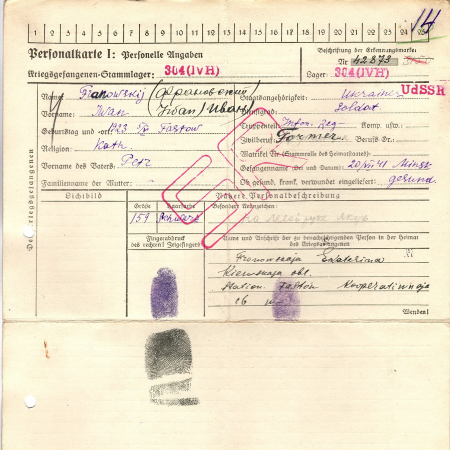 1 2 3 4 5 6 7 8 9 10 11 12 13 14 15 16 17 18 19 20 21 22 23 24 25
14
Personalkarte I: Personelle Angaben
Beschriftung der Erkennungsmarke:
Nr. 42873
Kriegsgefangenen-Stammlager: 304(IVH)
Lager: 304(IVH)
Des Kriegsgefangenen
Name: (Франовский) Staatsangehörigkeit: Ukraine
UdSSR
Vorname: Iwan Iwan/Иван Dienstgrad: Soldat
Geburtstag und -ort: 1923 Fastow Truppenteil: Infan. Reg Komp. usw.:
Religion: Kath. Zivilberuf: Former Berufs Gr.:
Matrikel Nr. (Stammrolle des Heimatstaates):
Vorname des Vaters: Petr Gefangennahme (Ort und Datum): 20/VII 41 Minsk
Familienname der Mutter: Ob gesund, krank, verwundet eingeliefert: gesund
Lichtbild Nähere Personalbeschreibung
Größe Haarfarbe Besondere Kennzeichen
159 schwarz
Fingerabdruck des rechten! Zeigefingers
Name und Anschrift der zu benachrichtigenden Person in der Heimat des Kriegsgefangenen
Ekaterina
Kiewskaja obl.
Station Fastow Kooperatiwnaja
16
Wenden!